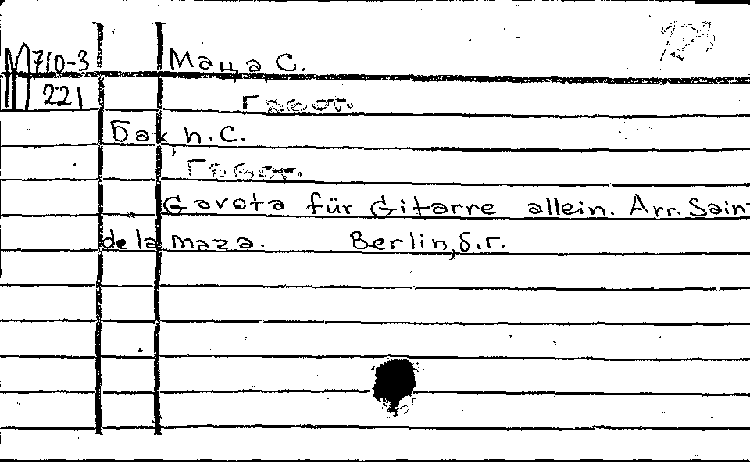 М 710-3 Маца С.
221 Гавот.
Бах, И. С.
Гавот.
Gavota für Gitarre allein. Arr. Sain-
de la maza. Berlin, б. г.